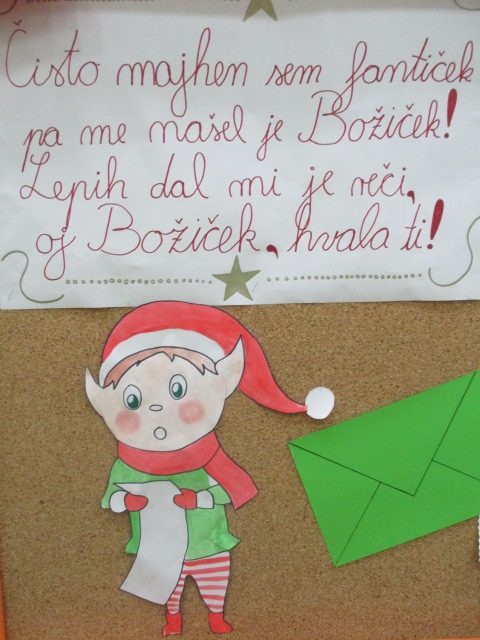 Čisto majhen sem fantiček
pa me našel je Božiček!
Lepih dal mi je reči,
oj Božiček, hvala ti!